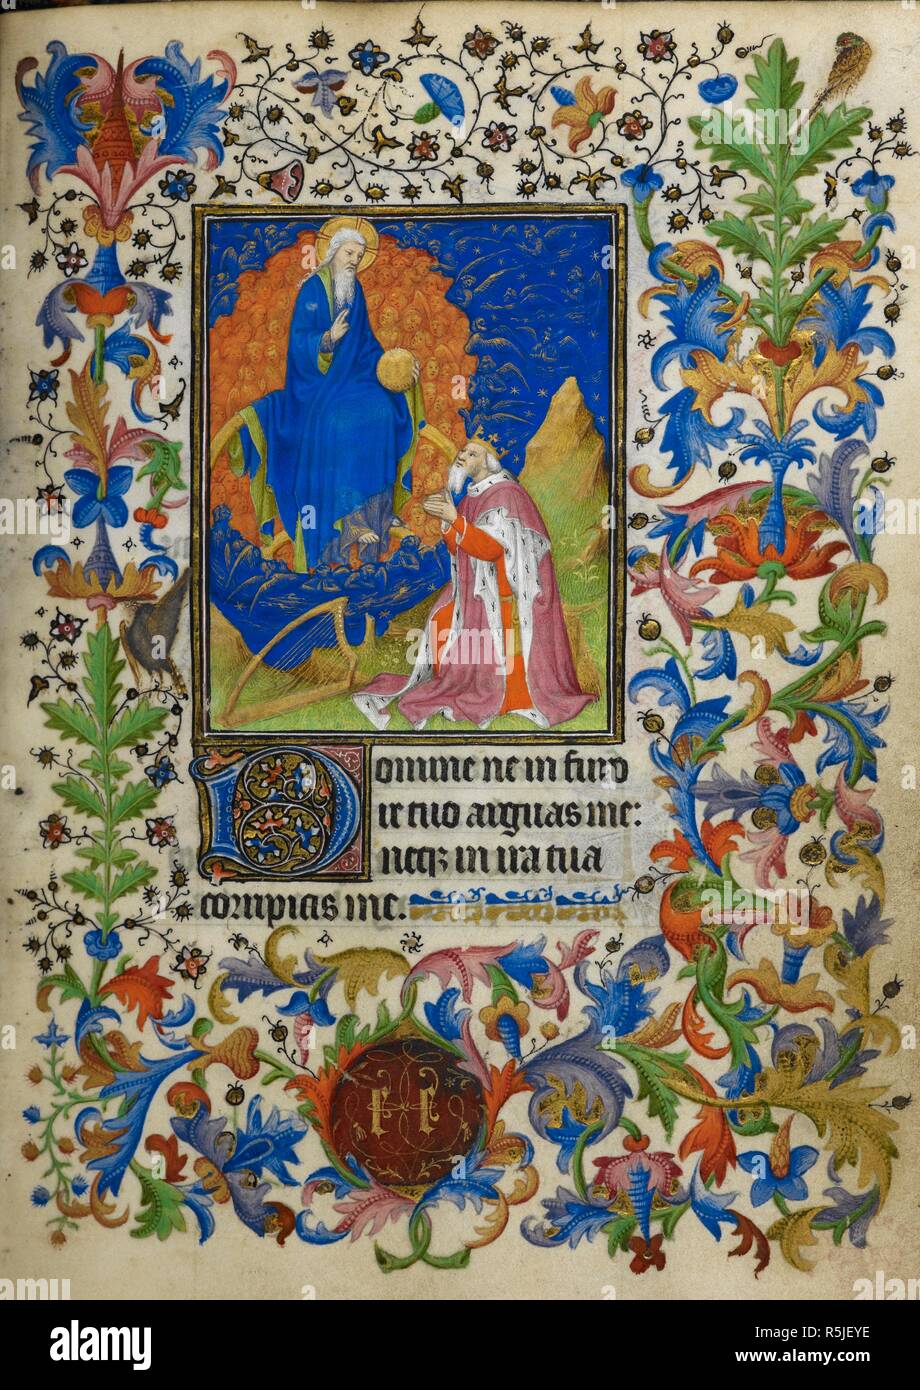 Domine ne in furo
re tuo arguas me:
neq3 in ira tua
corripias me.
a
a
a
a
alamy stock photo
R5JEYE
www.alamy.com